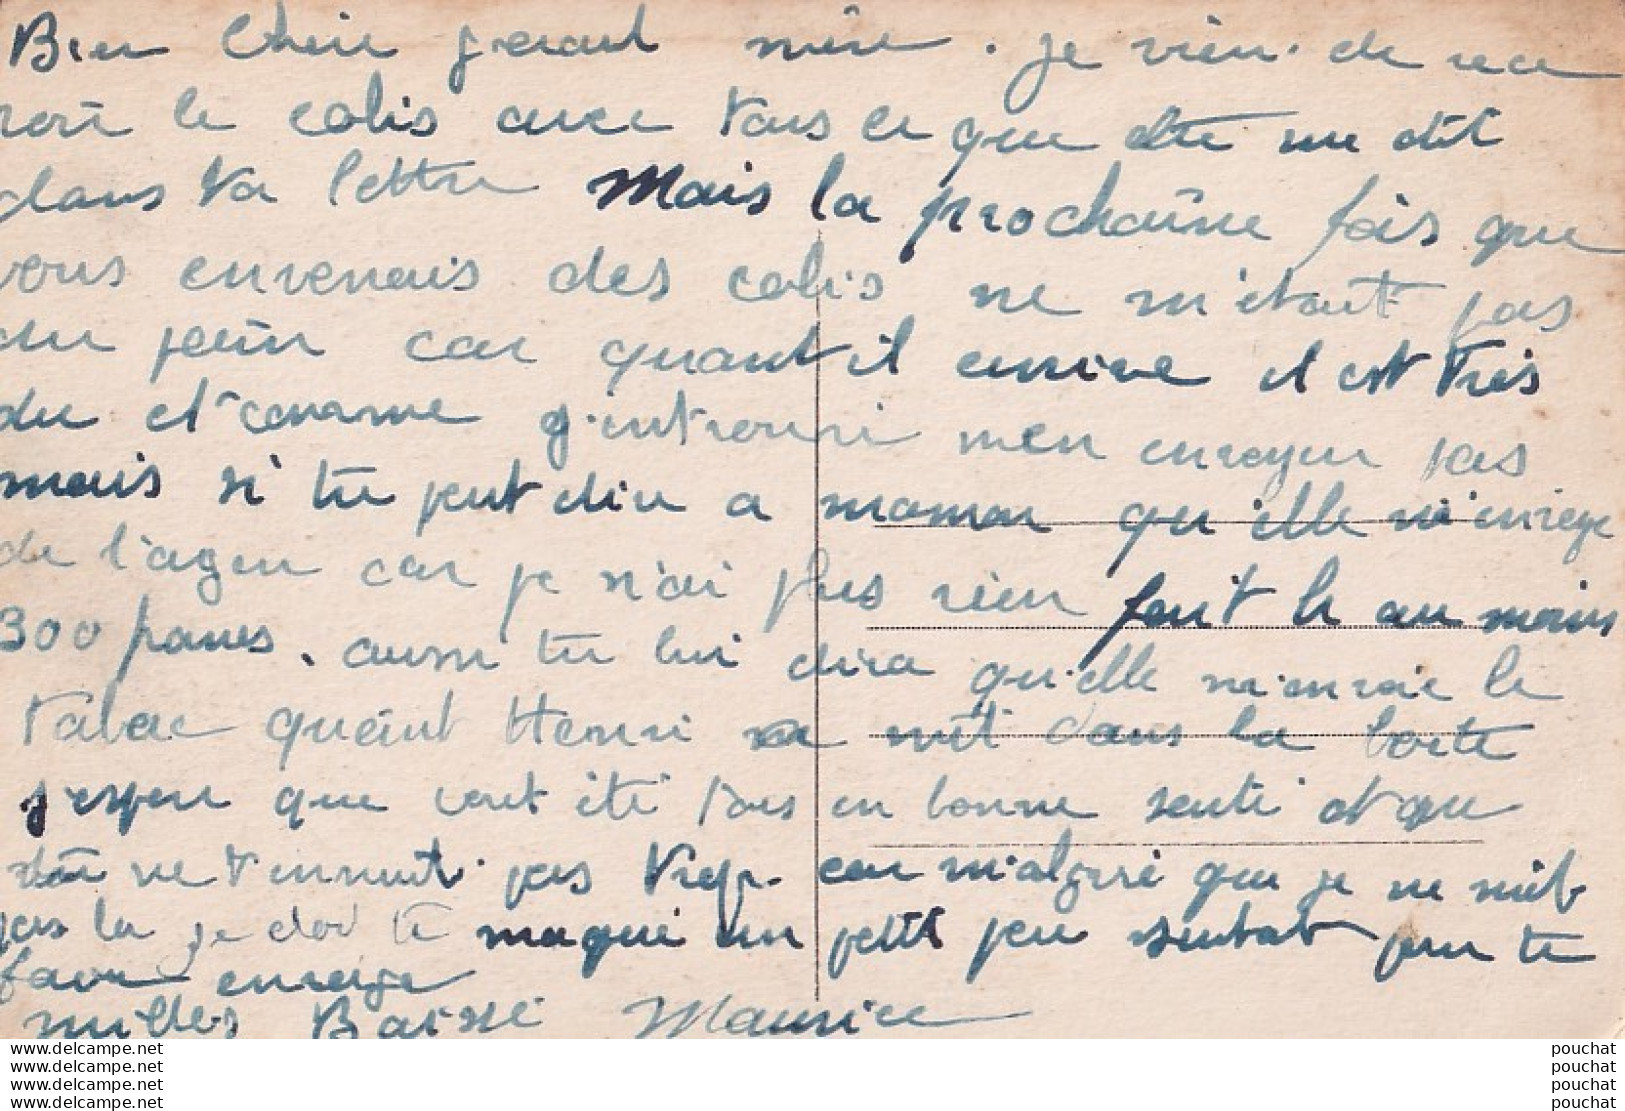 Bien Chère gerant mère. je vien de rece
voir le colis avec tous ce que ète me dit
dans ta lettre Mais la prochaîne fois que
vous envenais des colis ne m'étant pas
du pain car quant il arrive il est très
du et comme g'introuvé m'en envoyer pas
mais si tu peut dire a maman qu'elle m'envoge
de l'agen car je n'ai plus rien fait le au moins
300 francs. aussi tu lui dira qu'elle m'envoie le
tabac queint Henri a mit dans la boite
j'espere que vout ète tous en bonne senté et que
tu ne t'ennuit pas trop. car m'algré que je ne suit
pas la je doi te maqué un petit peu surtout pour te
faire enrage
milles Baisse Maurice
www.delcampe.net pouchat
www.delcampe.net pouchat
www.delcampe.net pouchat
www.delcampe.net pouchat